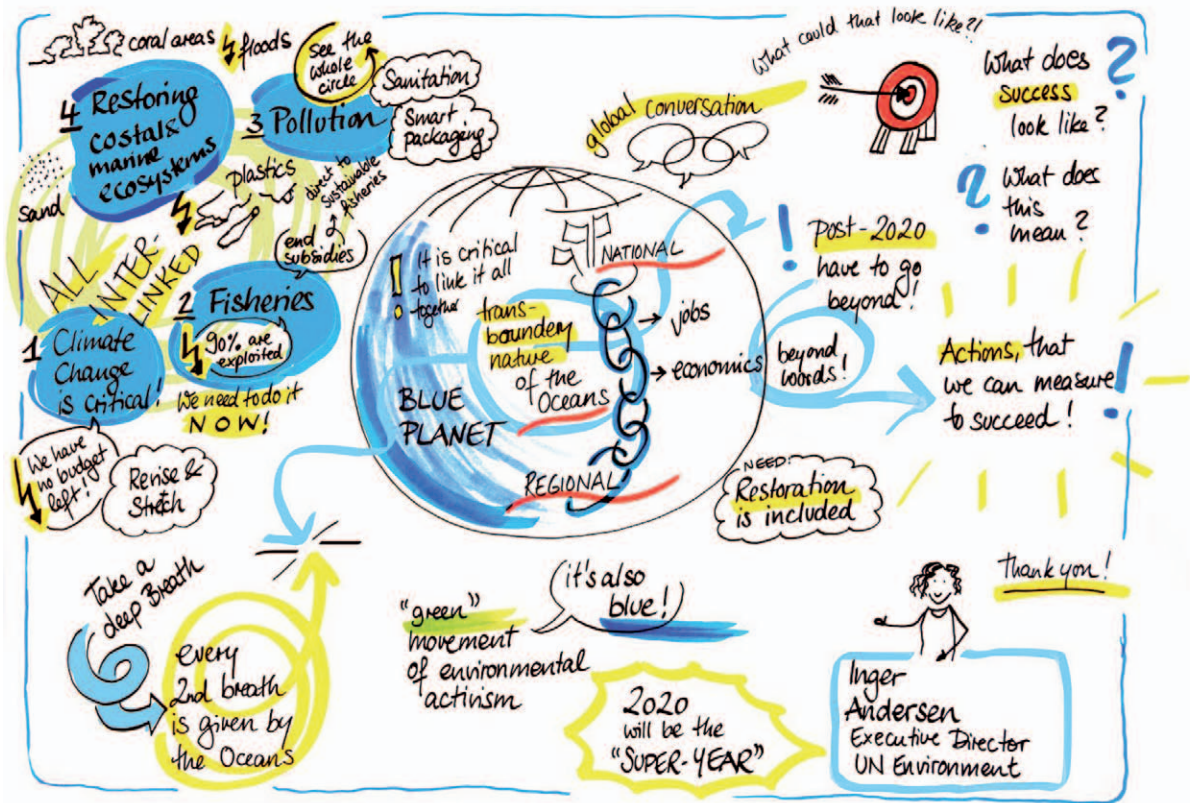 coral areas
floods
See the
whole
circle
Sanitation
Smart
packaging
4 Restoring
costal &
marine
ecosystems
3 Pollution
sand
plastics
direct to
sustainable
fisheries
end
subsidies
ALL
INTER-
LINKED
2 Fisheries
90% are
exploited
We need to do it
NOW!
1 Climate
Change
is critical!
We have
no budget
left!
Revise &
Stretch
What could that look like?!
global conversation
What does
success
look like?
?
?
What does
this
mean?
! It is critical
to link it all
together
NATIONAL
trans-
boundery
nature
of the
Oceans
jobs
economics
BLUE
PLANET
REGIONAL
!
Post-2020
have to go
beyond!
beyond
words!
Actions, that
we can measure
to succeed!
!
NEED:
Restoration
is included
Take a
deep Breath
every
2nd breath
is given by
the Oceans
"green"
movement
of environmental
activism
it's also
blue!
2020
will be the
"SUPER-YEAR"
Thank you!
Inger
Andersen
Executive Director
UN Environment